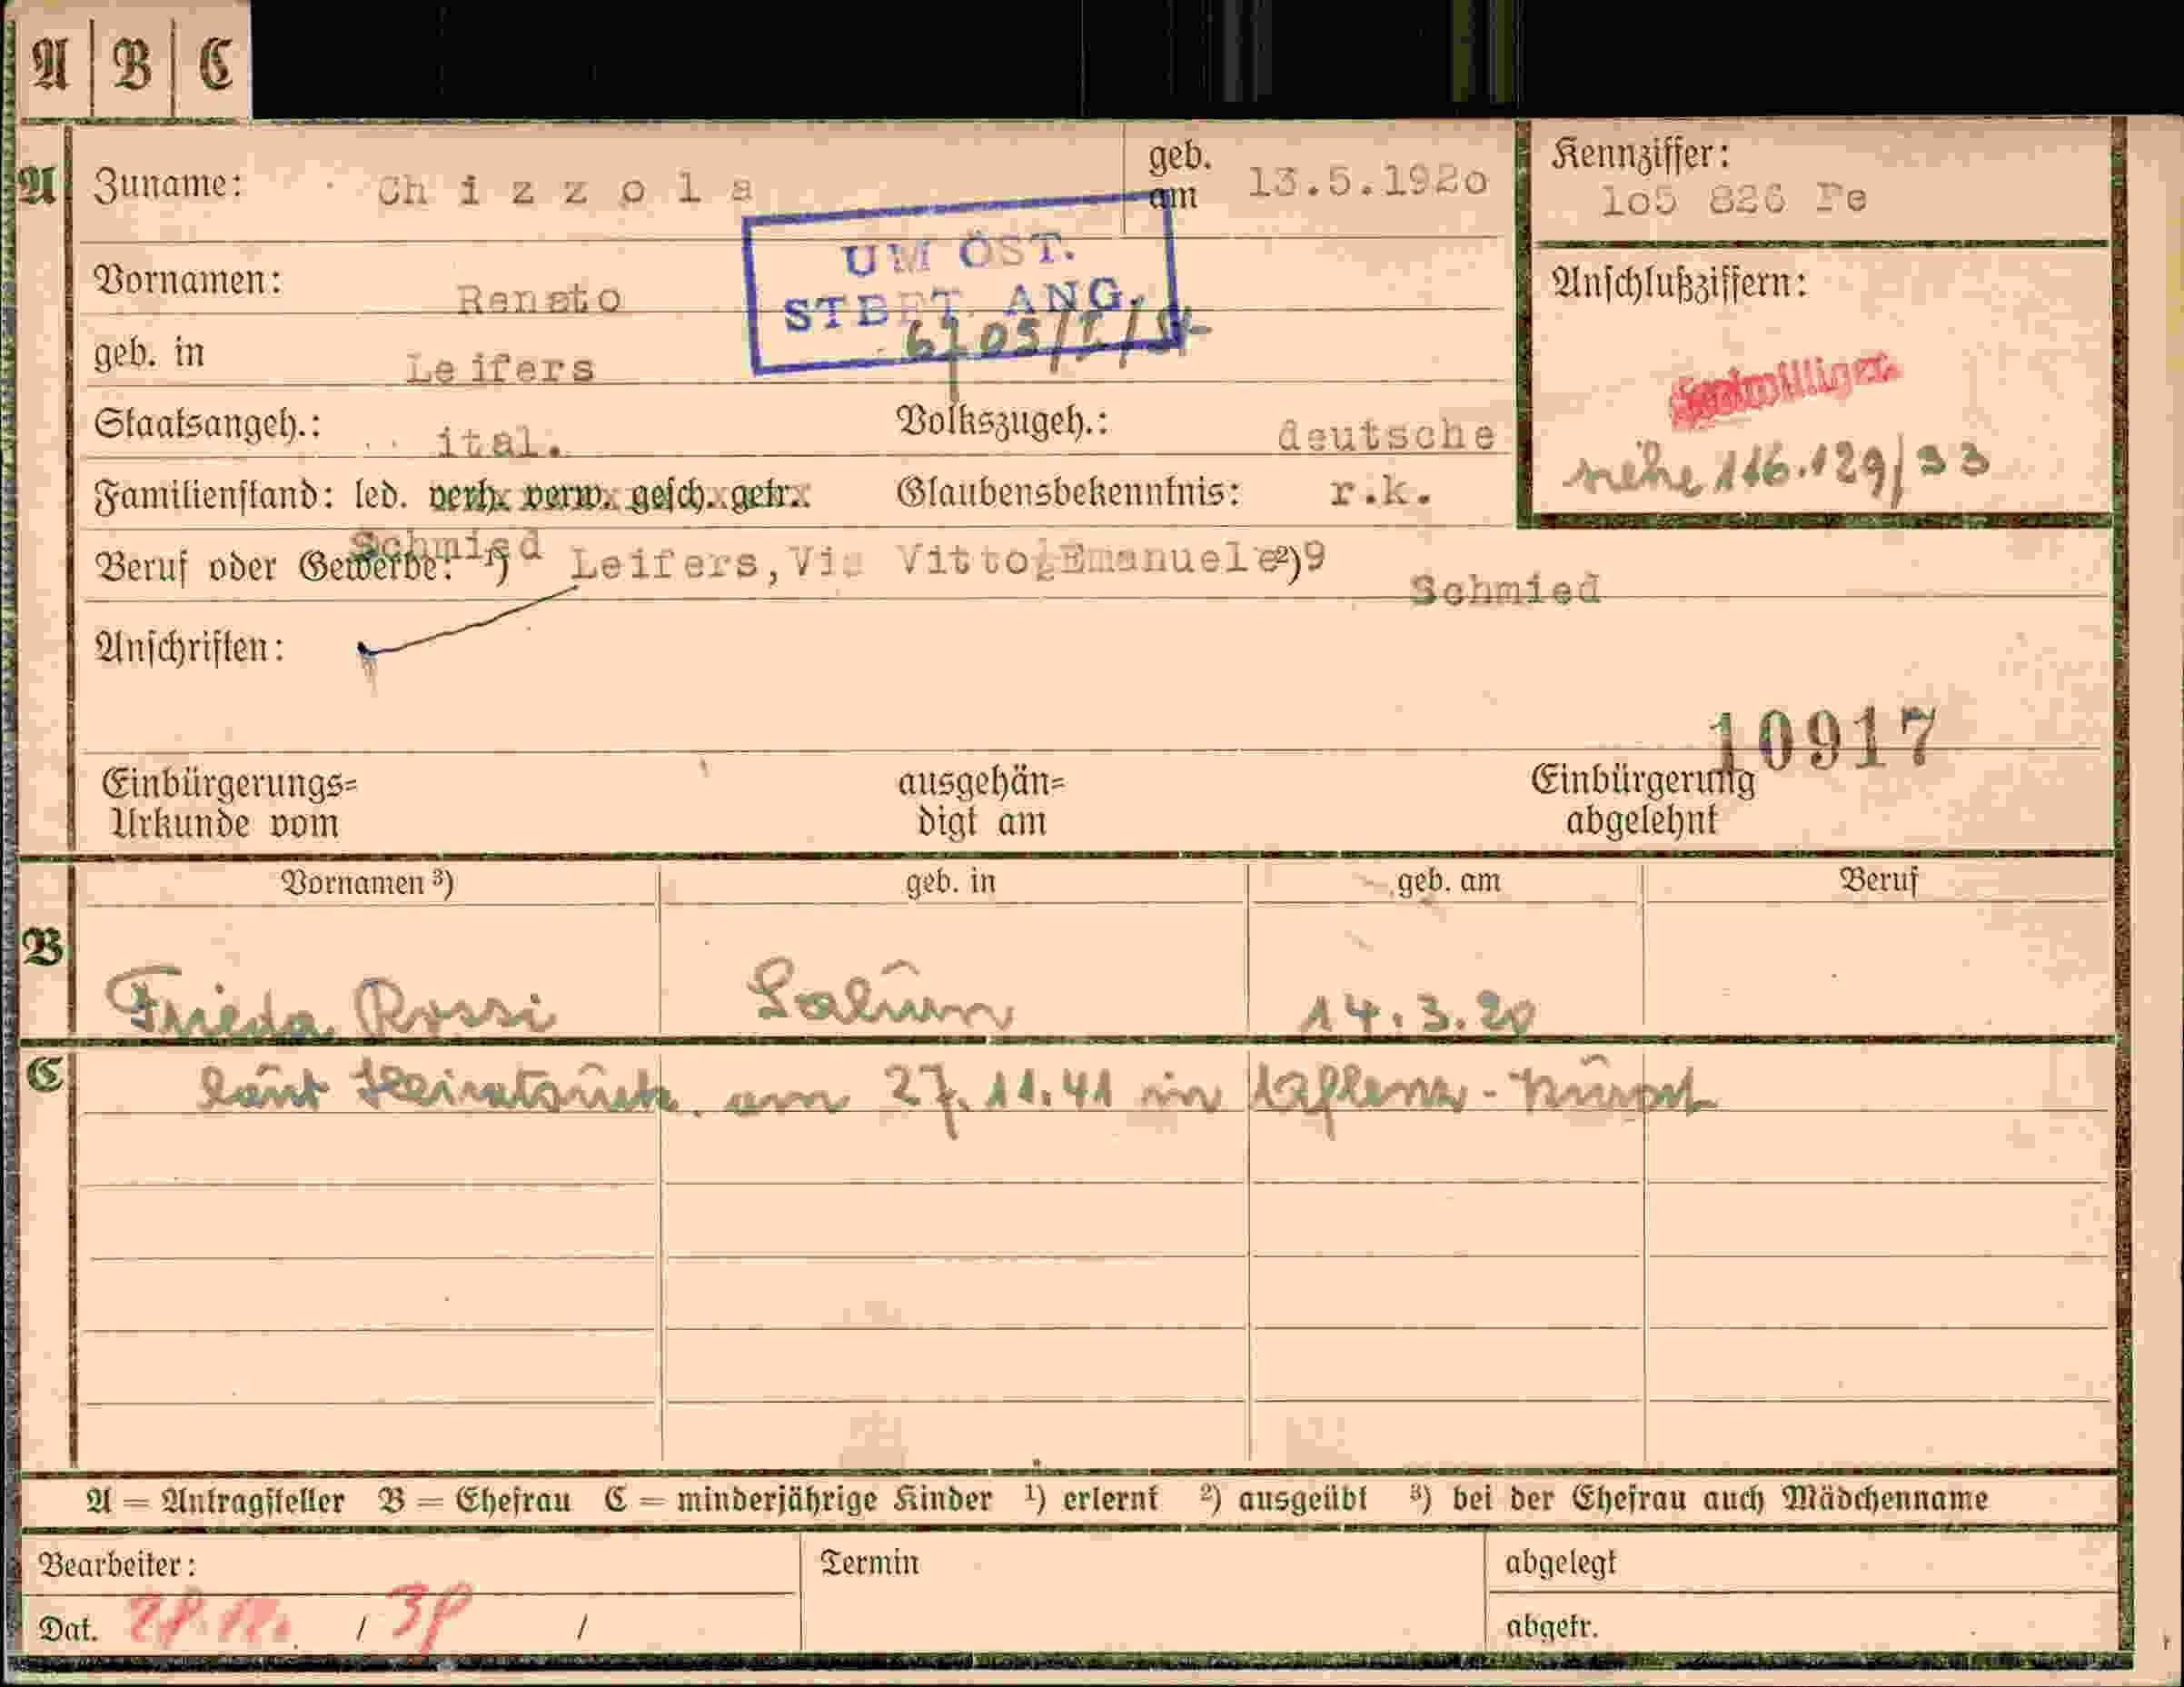 A | B | C
A Zuname: Chizzola geb. am 13.5.1920 Kennziffer:
105 826 Fe
UM ÖST.
Vornamen: Renato Anschlußziffern:
STBFT. ANG.
geb. in Leifers
Freiwilliger
Staatsangeh.: ital. Volkszugeh.: deutsche
siehe 116.129/33
Familienstand: led. verh. verw. gesch. getr. Glaubensbekenntnis: r.k.
Schmied
Beruf oder Gewerbe: 1) Leifers, Via Vitto Emanuele 2) 9
Schmied
Anschriften:
10917
Einbürgerungs= ausgehän= Einbürgerung
Urkunde vom digt am abgelehnt
Vornamen 3) geb. in geb. am Beruf
B Frieda Rossi Salurn 14.3.20
C laut Heiratsurk. am 27.11.41 in
A = Antragsteller B = Ehefrau C = minderjährige Kinder 1) erlernt 2) ausgeübt 3) bei der Ehefrau auch Mädchenname
Bearbeiter: Termin abgelegt
Dat. / / abgetr.